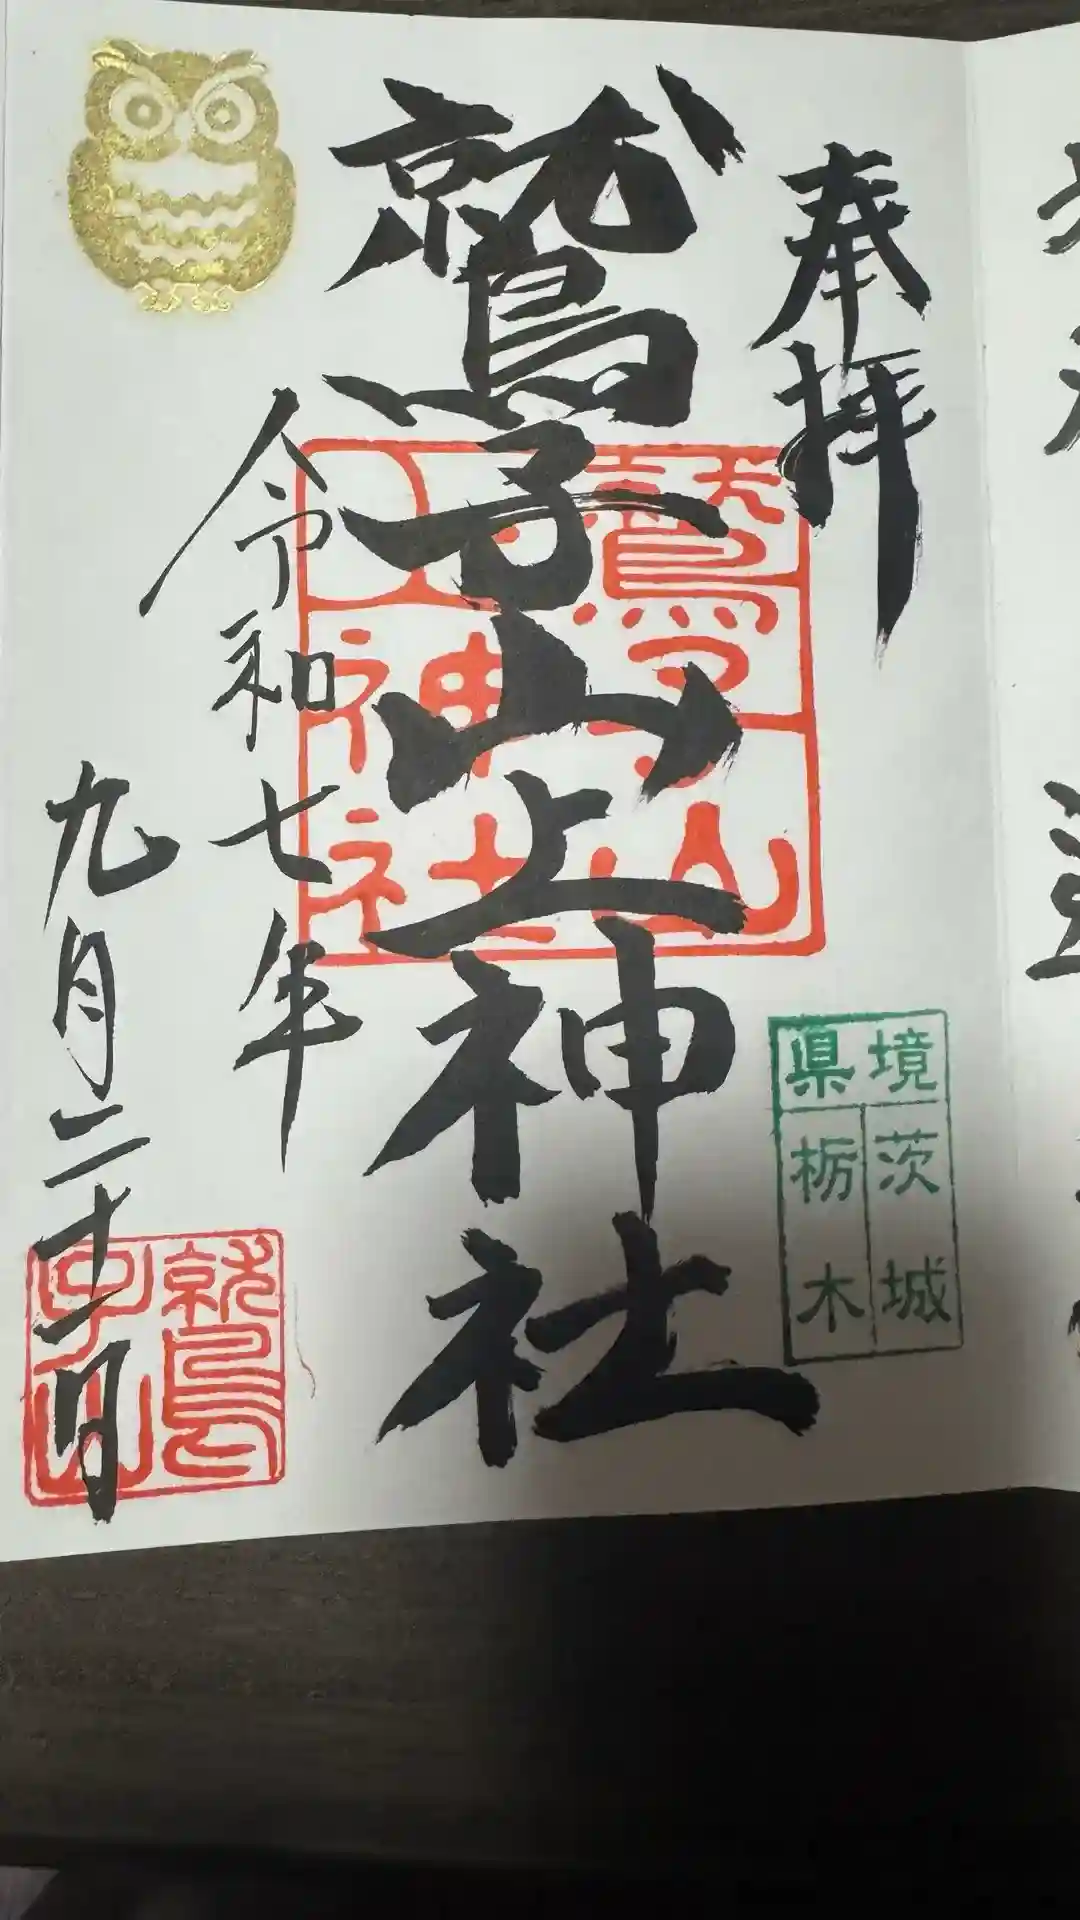 奉拝
鷲子山上神社
鷲子山上神社
令和七年
九月二十一日
鷲子山
県境
茨城
栃木